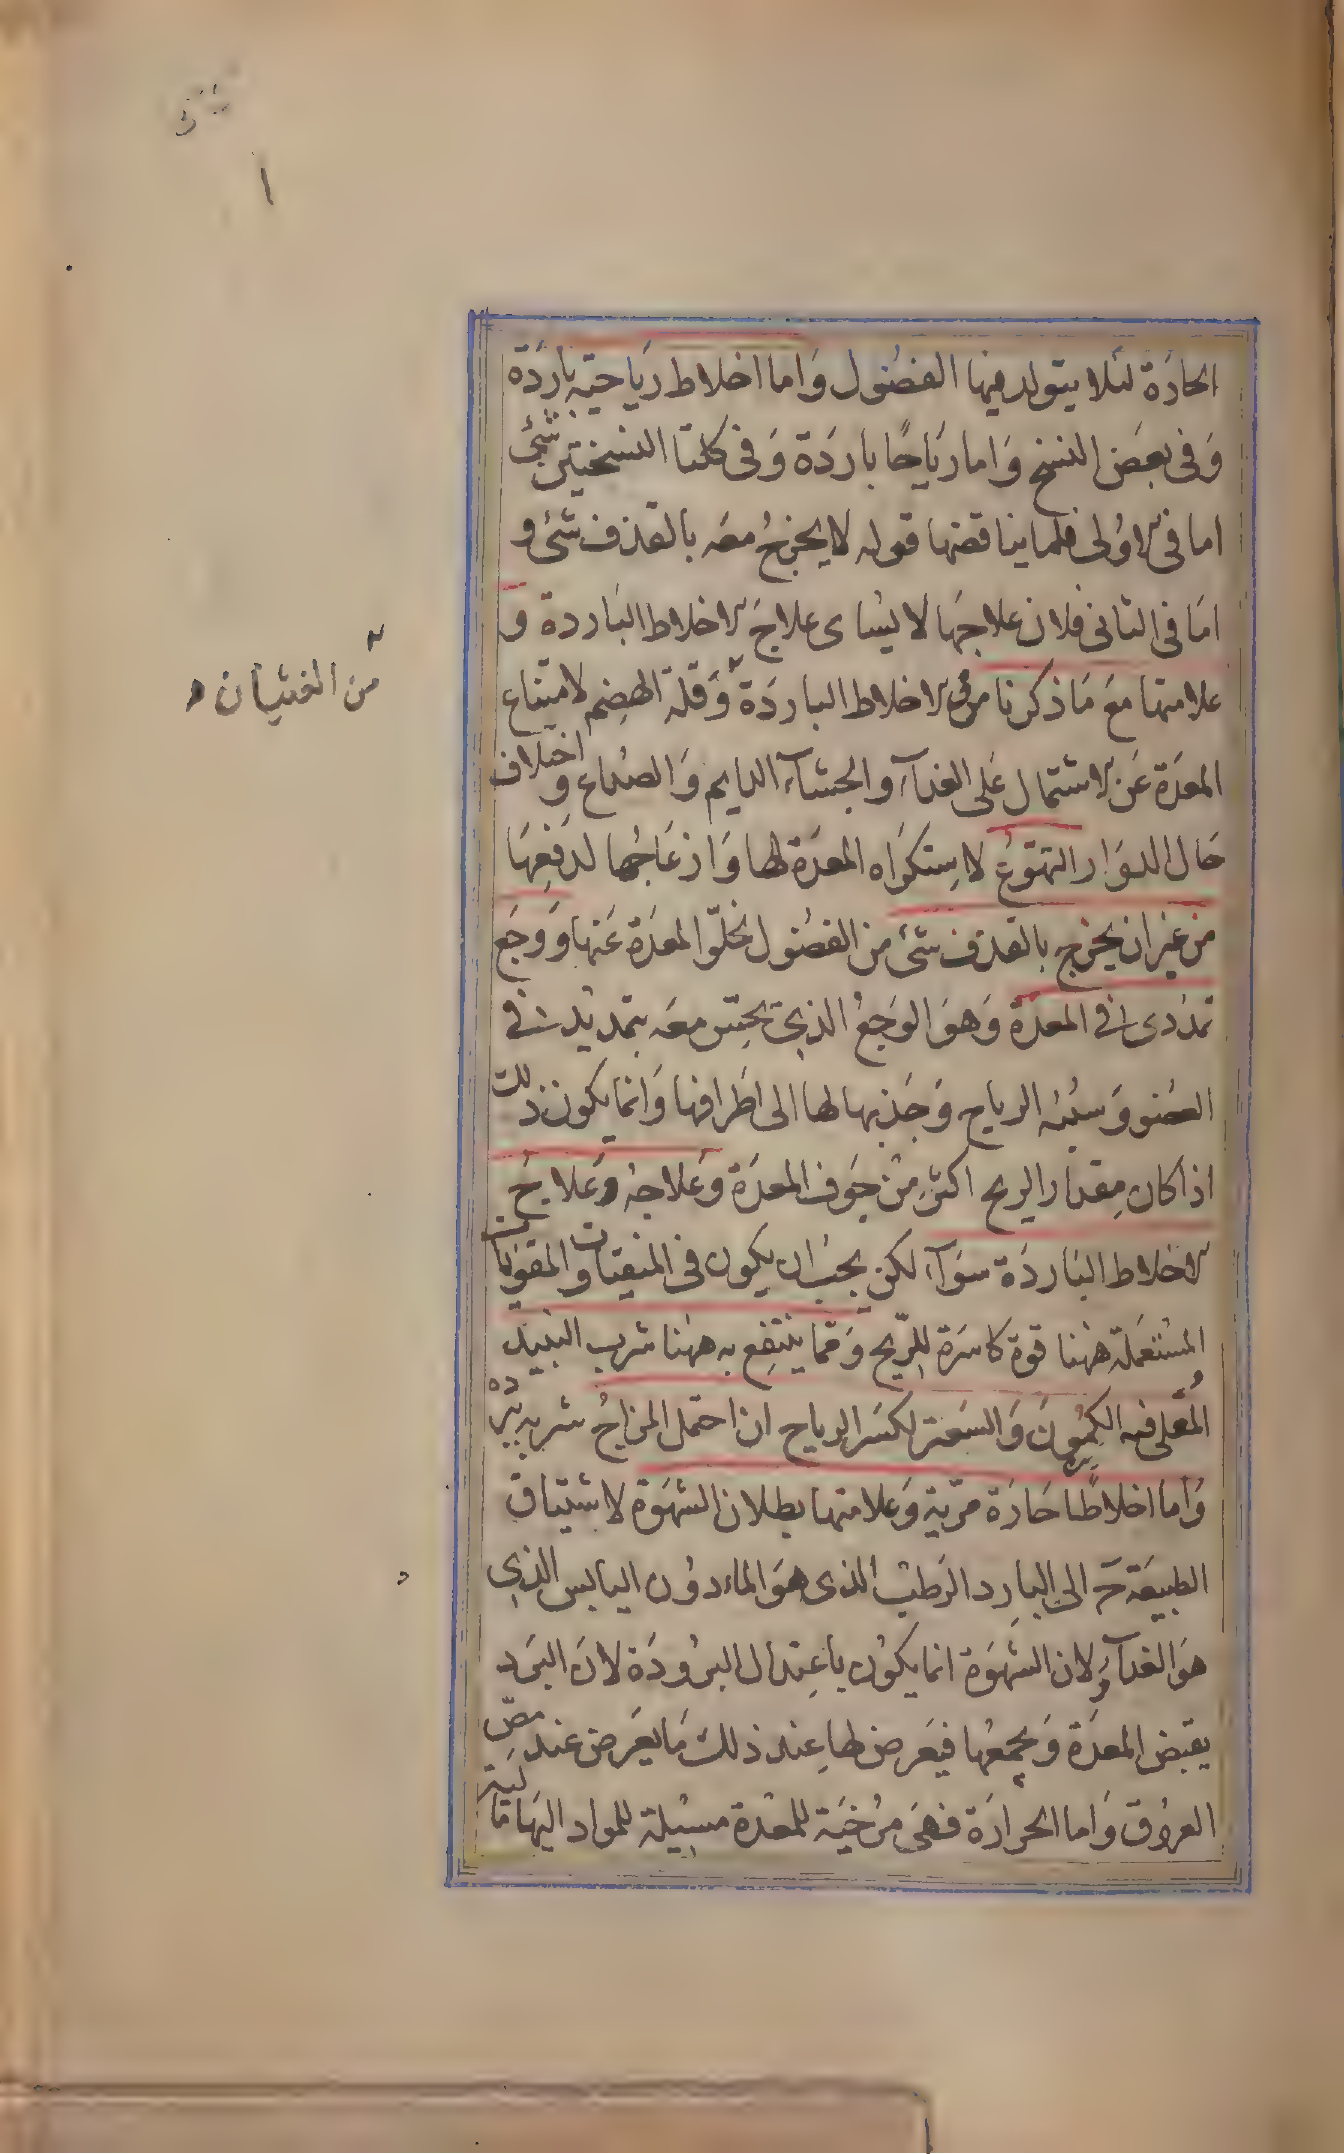 الحارة لئلا يتولد فيها الفضول وَاما اخلاط رياحية باردة
وَفى بعض النسخ وَاما رياحًا باردة وَفى كلتا النسختين شئ
اما فى الاولى فلما يناقضها قوله لا يخرج معه بالقذف شئ و
اما فى الثانى فلان علاجها لا يساى علاج الاخلاط الباردة و
علامتها مع ما ذكرنا من فى الاخلاط الباردة وَقلة الهضم لامتناع
من الغثيان
المعدة عن الاشتمال على الغذآء والجشآء الدايم وَالصداع و اختلاف
حال الدوار التهوع لاستكراه المعدة لها وَازعاجها لدفعها
من غير ان يخرج بالقذف شئ من الفضول لخلوّ المعدة عنها وَوجع
تمددى فى المعدة وَهو الوجع الذى يحس معه بتمديد فى
العضو وَسببه الرياح وَجذبها لها الى اطرافها وَانما يكون ذلك
اذا كان مقدار الريح اكثر من جوف المعدة وَعلاجه وَعلاج
الاخلاط الباردة سوآء لكن يجب ان يكون فى المنقيات والمقويات
المستعملة ههنا قوة كاسرة للريح وَمما ينتفع به ههنا شرب النبيذ
المُغلى فيه الكمون وَالسعتر لكسر الرياح ان احتمل المزاج شربه
وَاما اخلاطًا حارة مرّية وَعلامتها بطلان الشهوة لاشتياق
الطبيعة ح الى البارد الرطب الذى هو الماء دون اليابس الذى
هو الغذآء وَلان الشهوة انما يكون باعتدال البرودة لان البرد
يقبض المعدة وَيجمعها فيعرض لها عند ذلك ما يعرض عند مصّ
العروق وَاما الحرارة فهى مرخية للمعدة مسيلة للمواد اليها